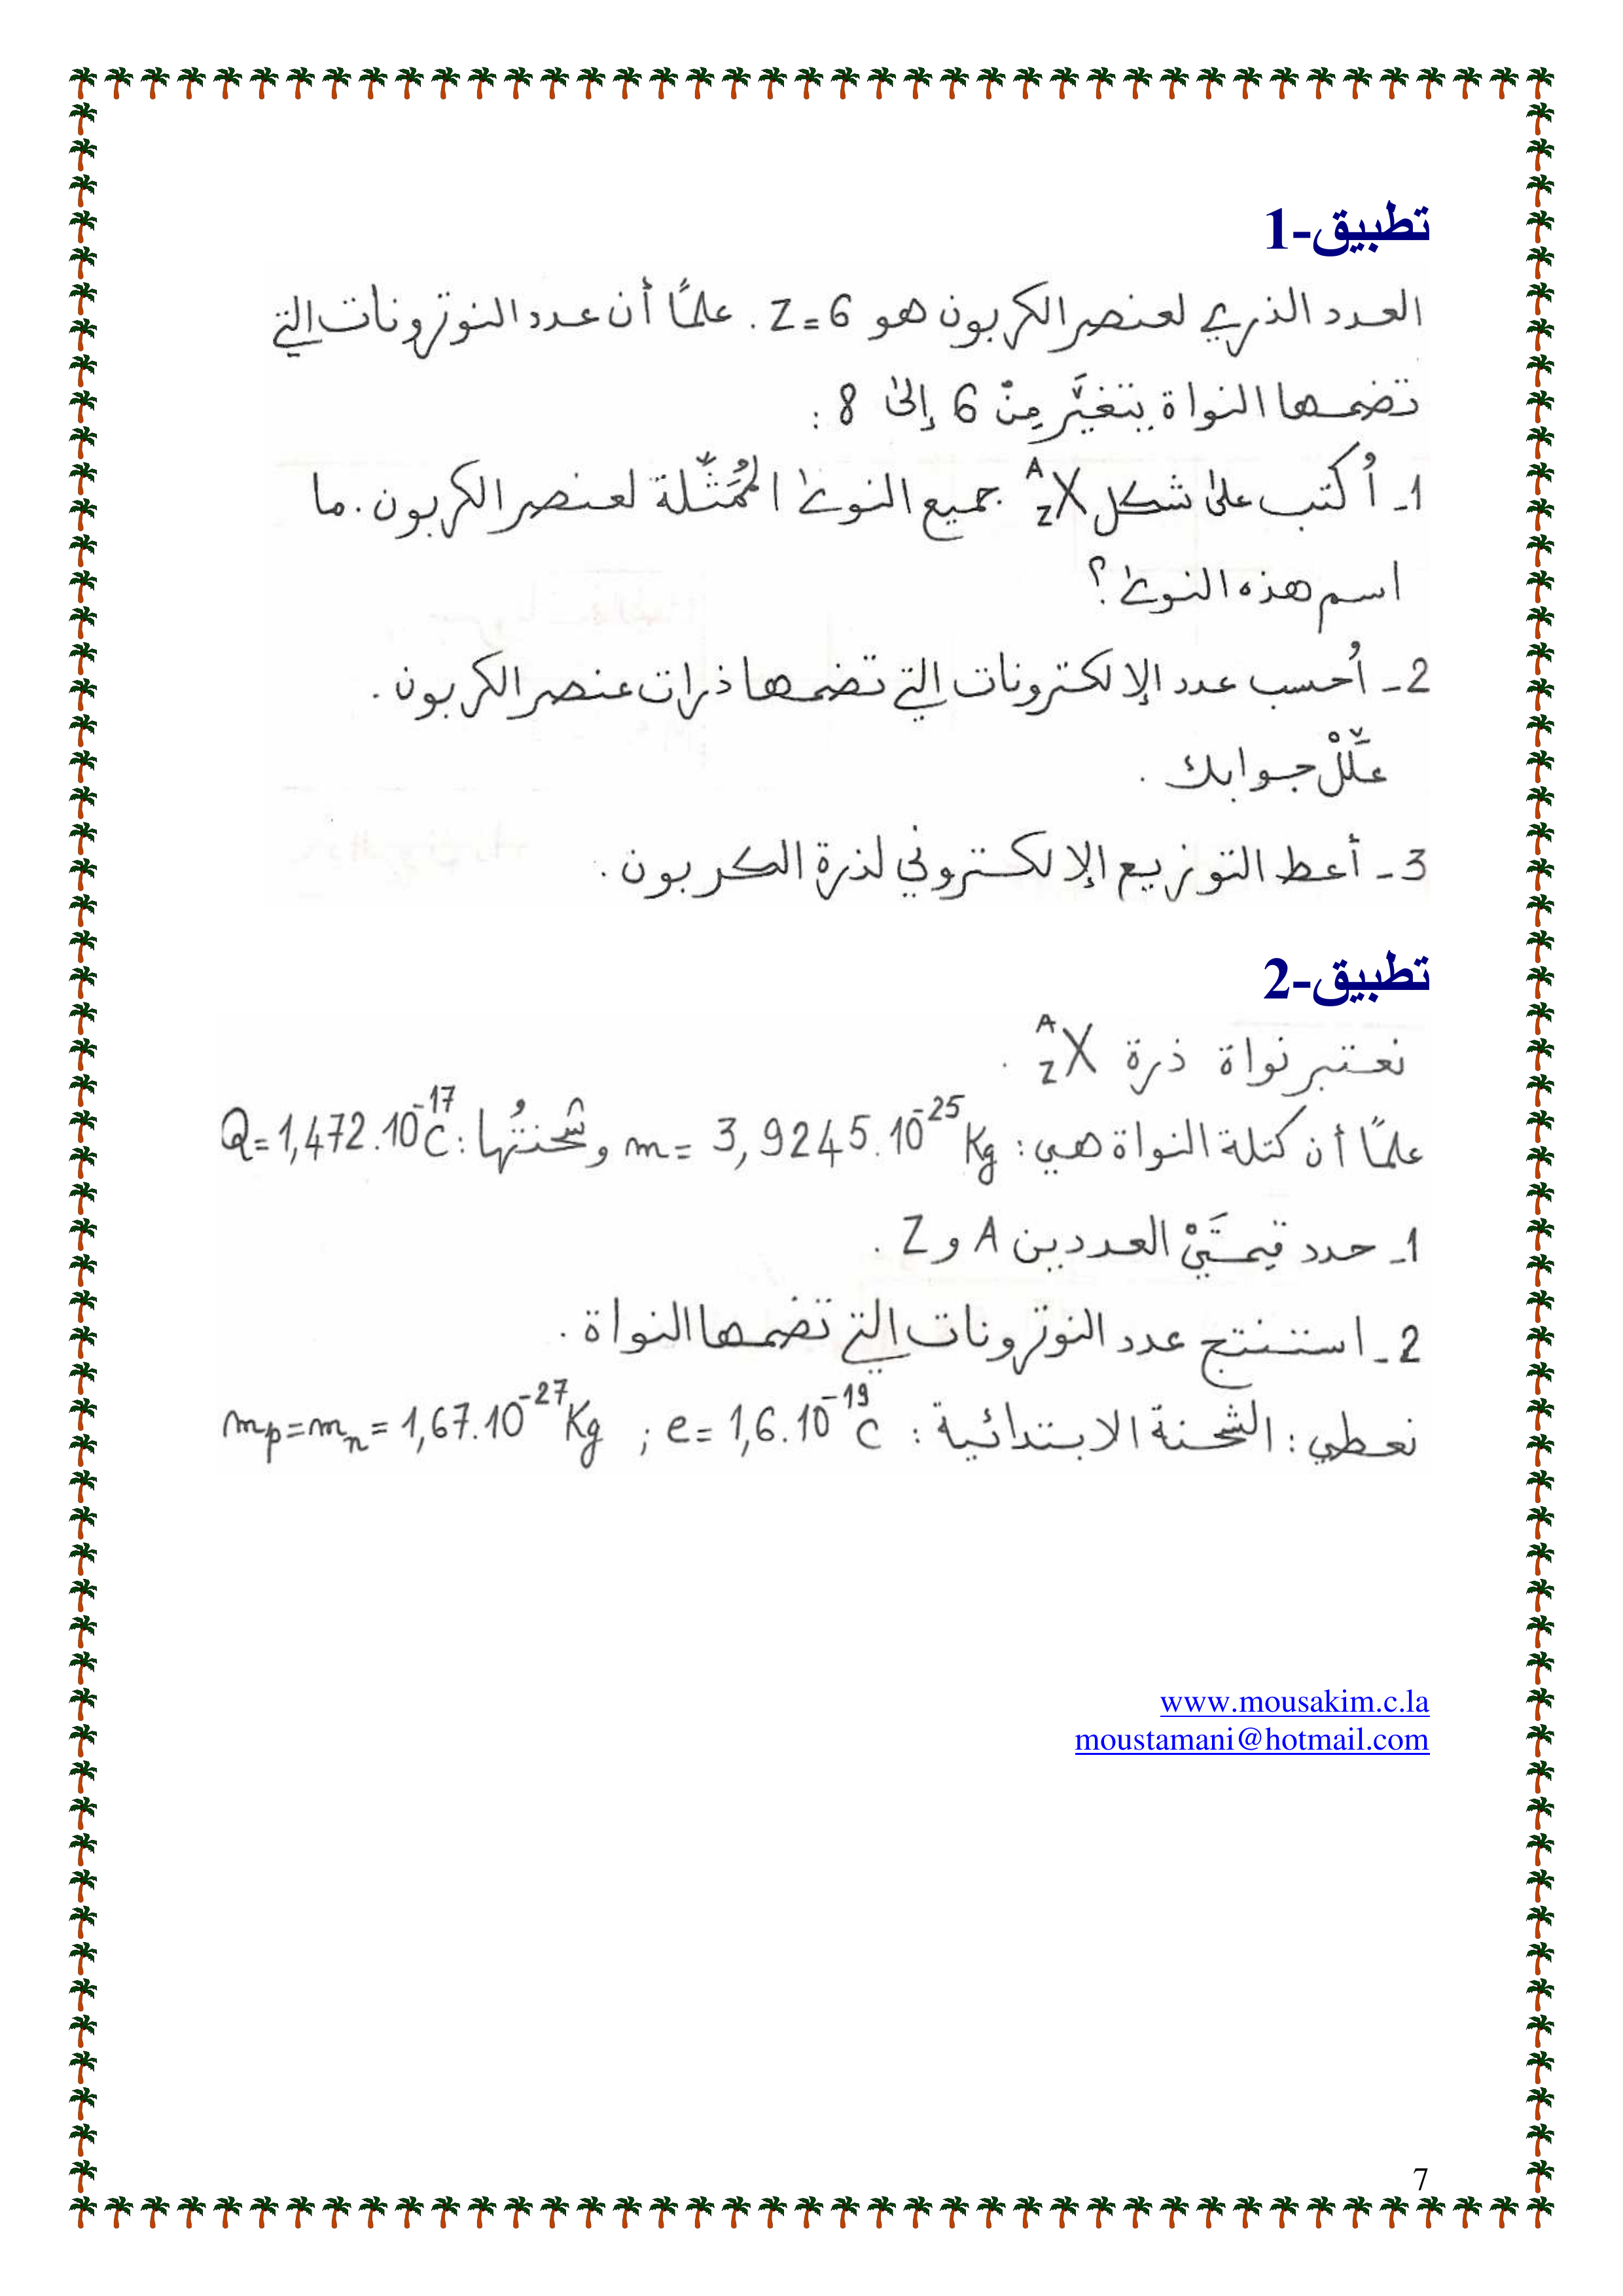 تطبيق-1
العدد الذري لعنصر الكربون هو Z=6. علمًا أن عدد النوترونات التي
تضمها النواة يتغيَّر مِنْ 6 إلى 8 :
1ـ أُكتب على شكل ᴬ_ZX جميع النوى المُمَثِّلة لعنصر الكربون. ما
اسم هذه النوى؟
2ـ أُحسب عدد الإلكترونات التي تضمها ذرات عنصر الكربون.
علِّلْ جوابك .
3ـ أعط التوزيع الإلكتروني لذرة الكربون .
تطبيق-2
نعتبر نواة ذرة ᴬ_ZX .
علمًا أن كتلة النواة هي : m = 3,9245.10⁻²⁵ Kg وشحنتُها : Q=1,472.10⁻¹⁷C
1ـ حدد قيمتَيْ العددين A و Z .
2ـ استنتج عدد النوترونات التي تضمها النواة .
نعطي : الشحنة الابتدائية : e= 1,6.10⁻¹⁹C ; mₚ=mₙ=1,67.10⁻²⁷Kg
www.mousakim.c.la
moustamani@hotmail.com
7